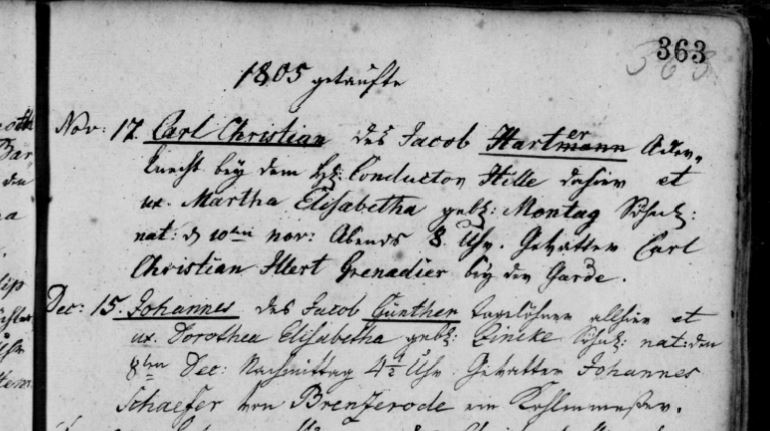 363
363
1805 getaufte
Nov: 17. Carl Christian des Jacob Hartmann er Acker„
knecht bey dem H: Conductor Hille dahier et
ux. Martha Elisabetha geb: Montag Söhnl:
nat: d 10ten Nov: Abends 8 Uhr. Gevatter Carl
Christian Illert Grenadier bey der Garde.
Dec: 15. Johannes des Jacob Günther Tagelöhner allhier et
ux. Dorothea Elisabetha geb: Lincke Söhnl: nat: den
8ten Dec: Nachmittag 4½ Uhr Gevatter Johannes
Schaefer von Brenzerode ein Kohlenmeßer.